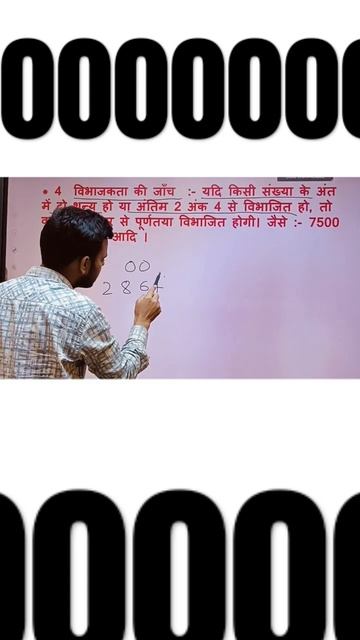 0000000
• 4 विभाजकता की जाँच :- यदि किसी संख्या के अंत
में दो शून्य हो या अंतिम 2 अंक 4 से विभाजित हो, तो
से पूर्णतया विभाजित होगी। जैसे :- 7500
आदि ।
00
286
00000